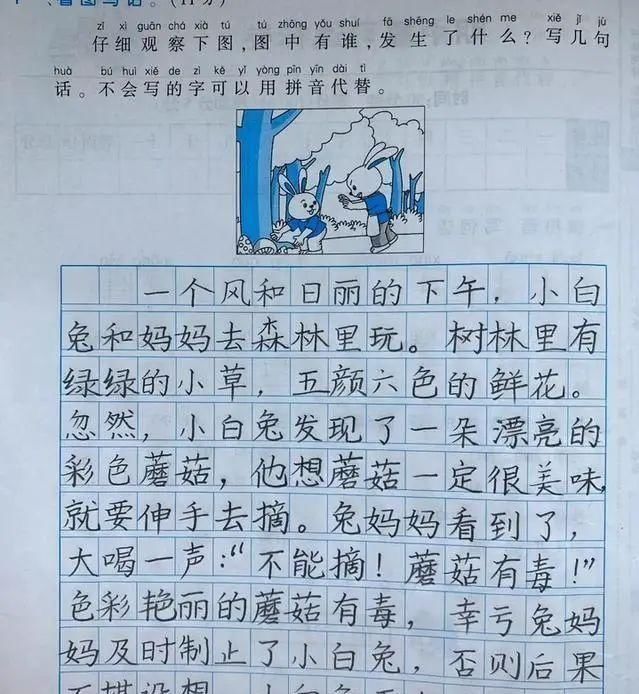 看图写话。(11分)
zǐ xì guān chá xià tú tú zhōng yǒu shuí fā shēng le shén me xiě jǐ jù
仔细观察下图,图中有谁,发生了什么?写几句
huà bú huì xiě de zì kě yǐ yòng pīn yīn dài tì
话。不会写的字可以用拼音代替。
一个风和日丽的下午,小白
兔和妈妈去森林里玩。树林里有
绿绿的小草,五颜六色的鲜花。
忽然,小白兔发现了一朵漂亮的
彩色蘑菇,他想蘑菇一定很美味,
就要伸手去摘。兔妈妈看到了,
大喝一声:“不能摘!蘑菇有毒!”
色彩艳丽的蘑菇有毒,幸亏兔妈
妈及时制止了小白兔,否则后果